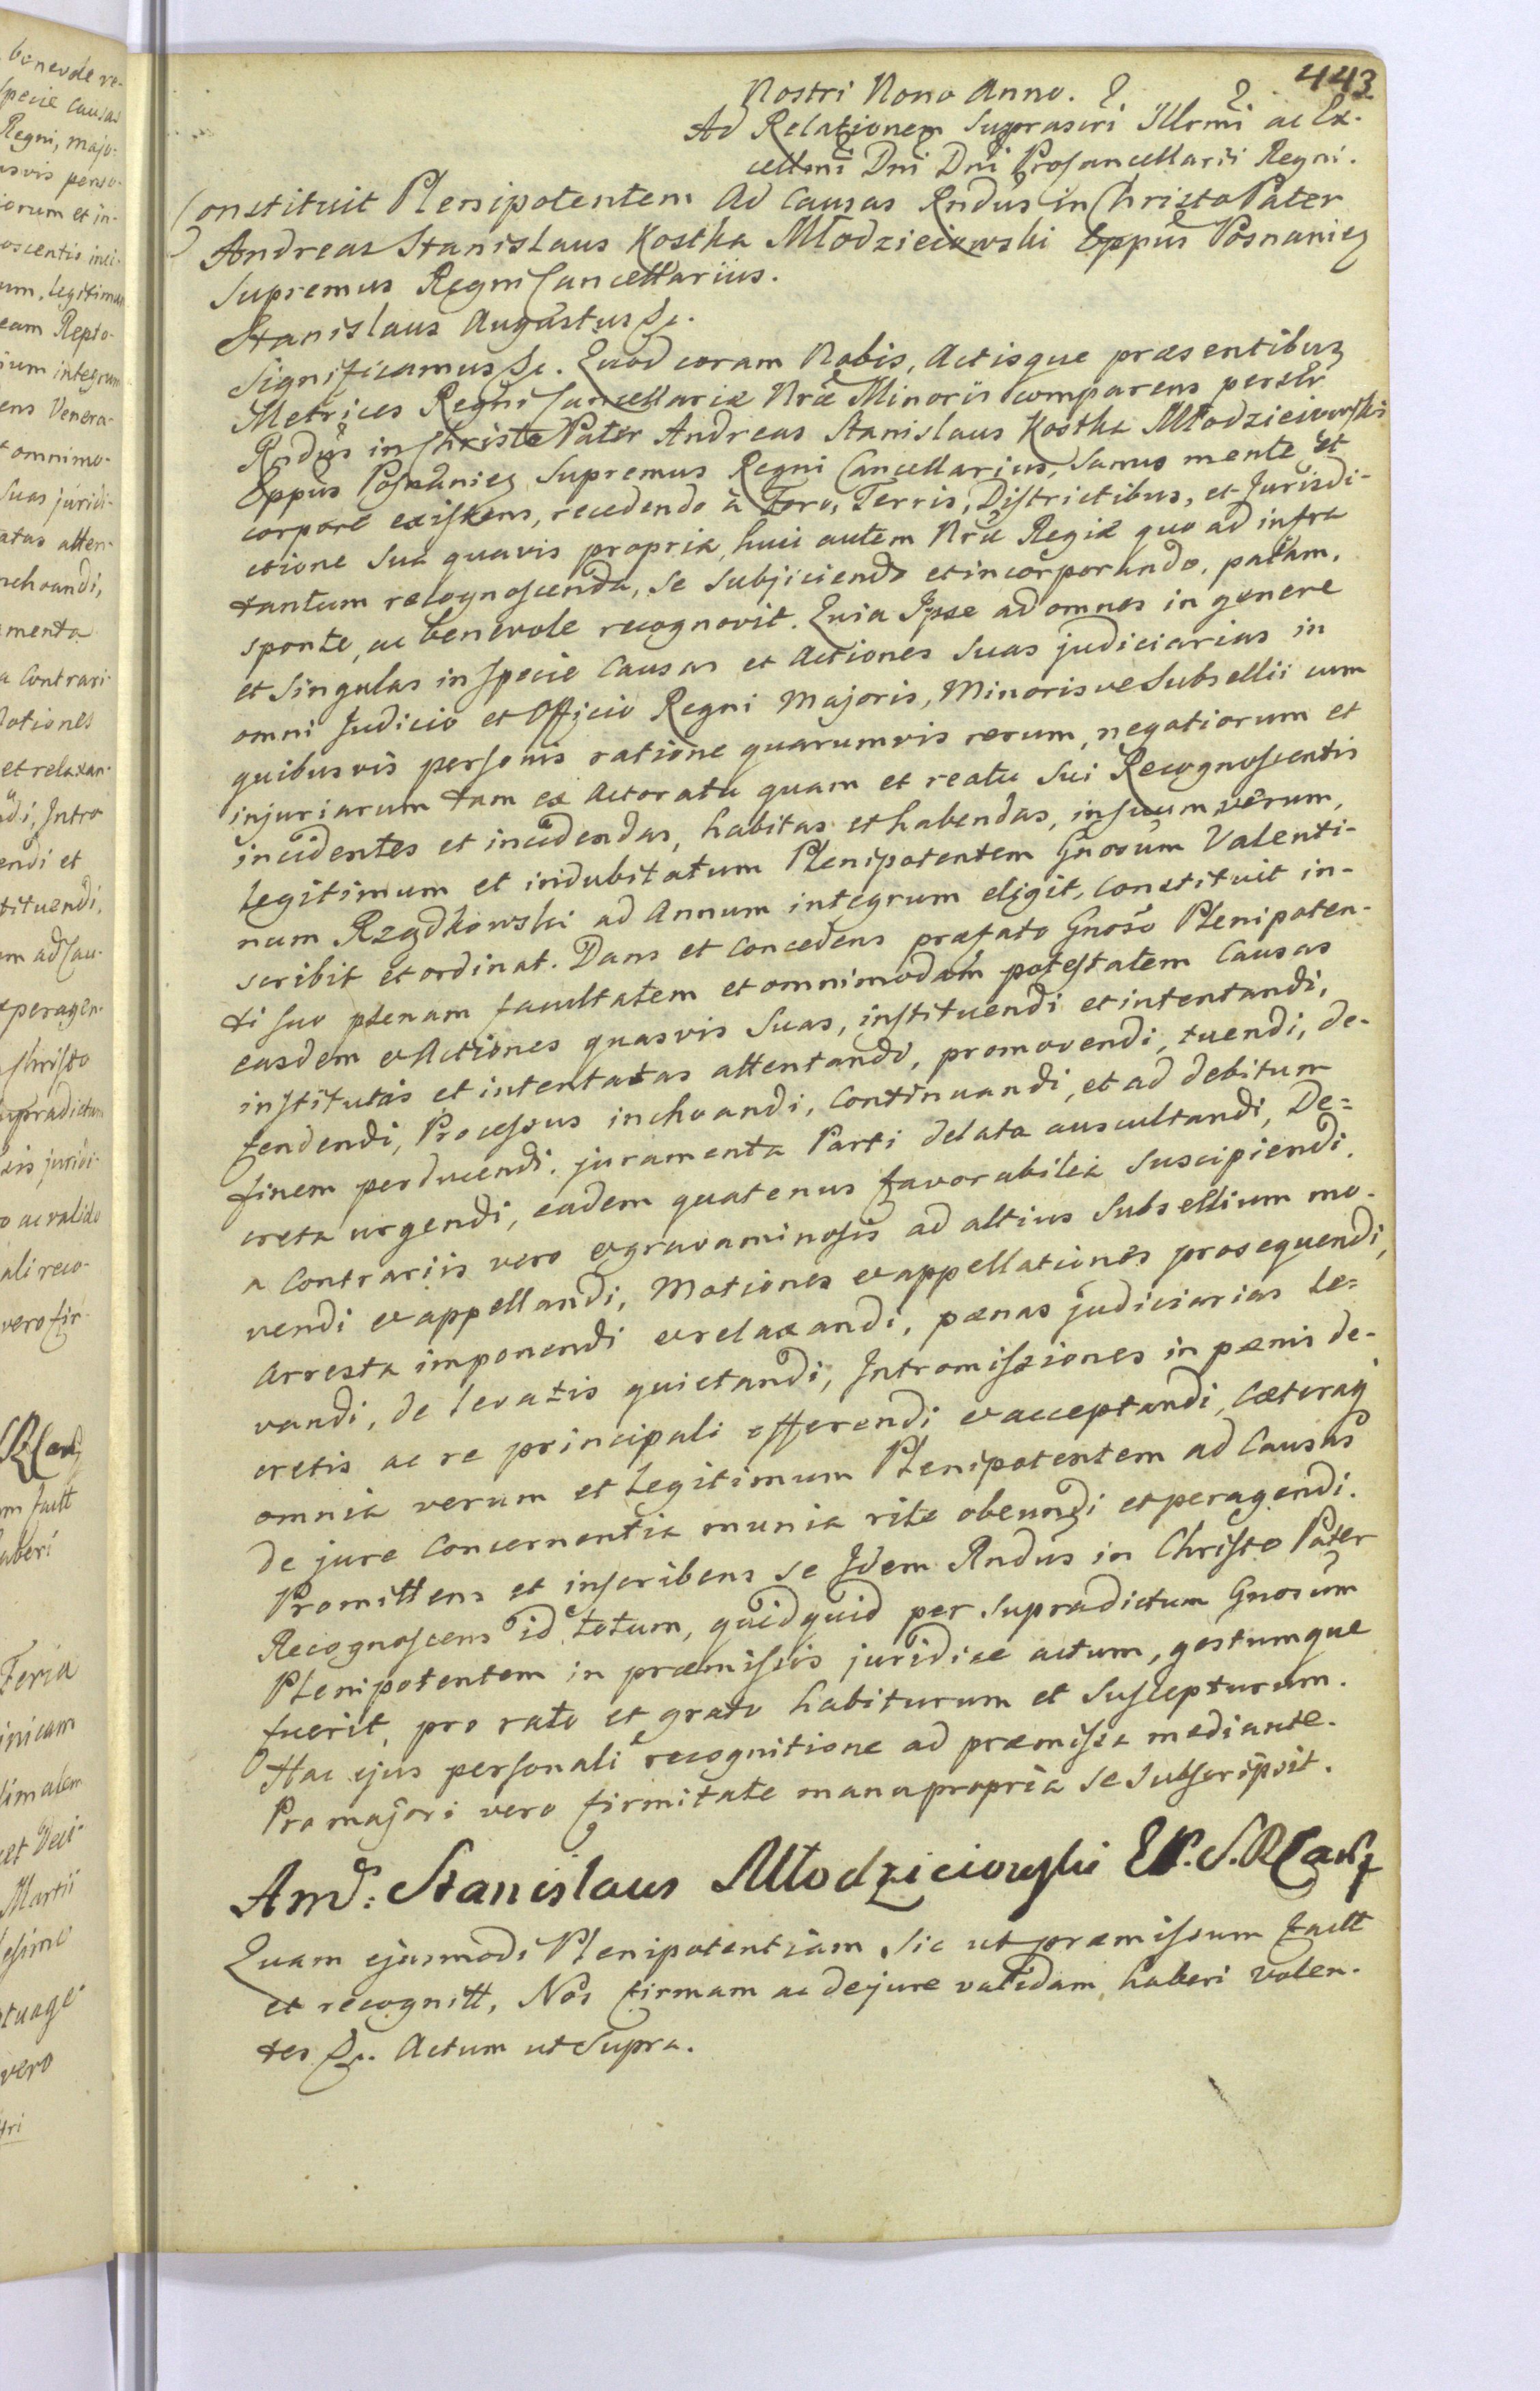 443
Nostri Nono Anno.
Ad Relationem Suprascri Illrmi ac Ex-
cellmi Dni Dni Procancellarii Regni.
Constituit Plenipotentem Ad Causas Rndus in Christo Pater
Andreas Stanislaus Kostka Młodzieiowski Eppus Posnanien
Supremus Regni Cancellarius.
Stanislaus Augustus &c.
Significamus &c. Quod coram Nobis, Actisque præsentibus
Metrices Regni Cancellariæ Nræ Minoris comparens perslīr
Rndus in Christo Pater Andreas Stanislaus Kostka Młodzieiowski
Eppus Posnanien Supremus Regni Cancellarius, Sanus mente et
corpore existens, recedendo à Foro, Terris, Districtibus, et Jurisdi-
ctione Sua quavis propria, huic autem Nræ Regiæ quo ad infra
tantum recognoscenda, se subjiciendo et incorporando, palam,
sponte, ac benevole recognovit. Quia Ipse ad omnes in genere
et Singulas in specie Causas et Actiones Suas judiciarias in
omni Judicio et Officio Regni Majoris, Minorisve Subsellii cum
quibusvis personis ratione quarumvis rerum, negotiorum et
injuriarum tam ex Actoratu quam et reatu Sui Recognoscentis
incidentes et incidendas, habitas et habendas, in suum verum,
legitimum et indubitatum Plenipotentem Gnosum Valenti-
num Rządkowski ad Annum integrum eligit, Constituit in-
scribit et ordinat. Dans et Concedens præfato Gnoso Plenipoten-
ti suo plenam facultatem et omnimodam potestatem Causas
easdem et Actiones quasvis Suas, instituendi et intentandi,
institutas et intentatas attentandi, promovendi, tuendi, de-
fendendi, Processus inchoandi, Continuandi, et ad debitum
finem perducendi, juramenta Parti delata auscultandi, De=
creta urgendi, eadem quatenus favorabilia Suscipiendi,
a Contrariis vero et gravaminosis ad altius Subsellium mo-
vendi et appellandi, Motiones et appellationes prosequendi,
Arresta imponendi et relaxandi, pænas judiciarias le=
vandi, de levatis quietandi, Intromissiones in pænis de-
cretis ac re principali offerendi et acceptandi, Cæteraq
omnia verum et Legitimum Plenipotentem ad Causas
de jure Concernentia munia rite obeundi et peragendi.
Promittens et inscribens se Idem Rndus in Christo Pater
Recognoscens id totum, quidquid per Supradictum Gnosum
Plenipotentem in præmissis juridice actum, gestumque
fuerit, pro rato et grato habiturum et Suscepturum.
Hac ejus personali recognitione ad præmissa mediante.
Pro majori vero firmitate manu propria se Subscripsit.
And: Stanislaus Młodzieiowski EP. S.R.Canc
Quam ejusmodi Plenipotentiam Sic ut præmissum factt
et recognitt, Nos firmam ac de jure validam haberi volen-
tes &c. Actum ut Supra.